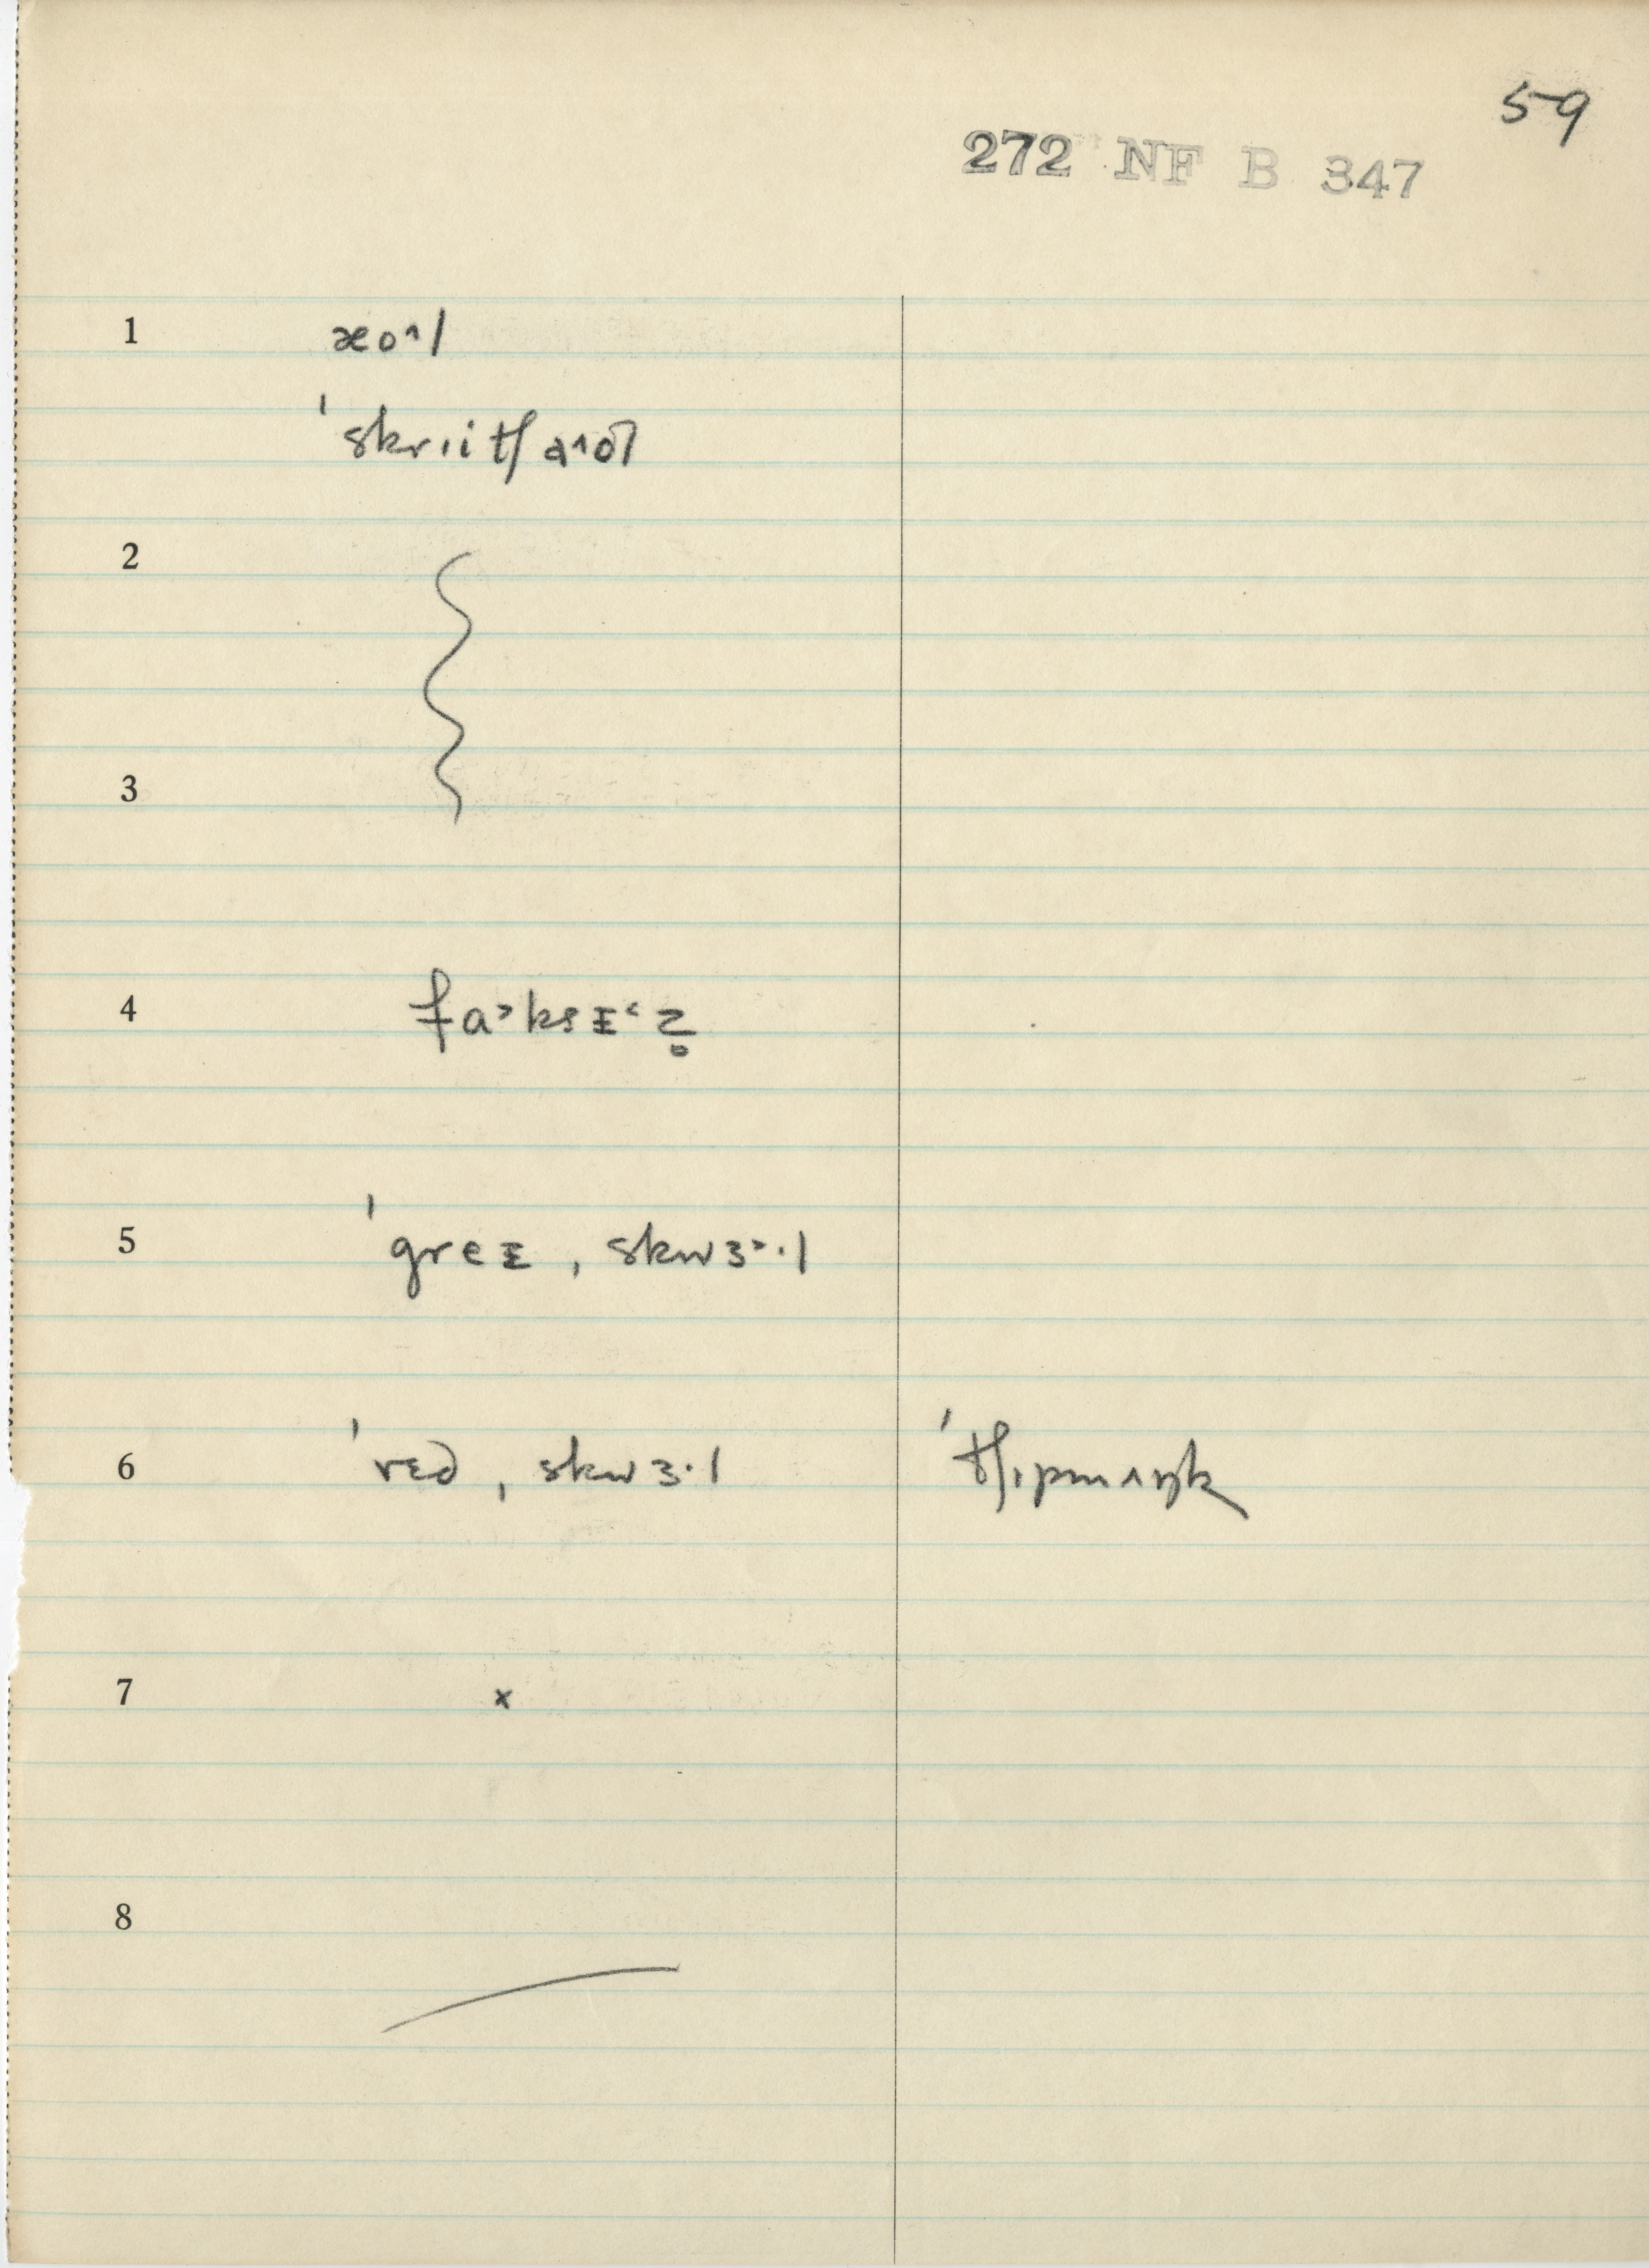 59
272 NF B 347
1 æo^l
ˈskriitʃ a^ol
2
3
4 fa˃ksɪ˂z̥
5 ˈgreɪ ˌskwɜ˃·l
6 ˈred ˌskwɜ·l ˈtʃɪpmʌŋk
7 x
8